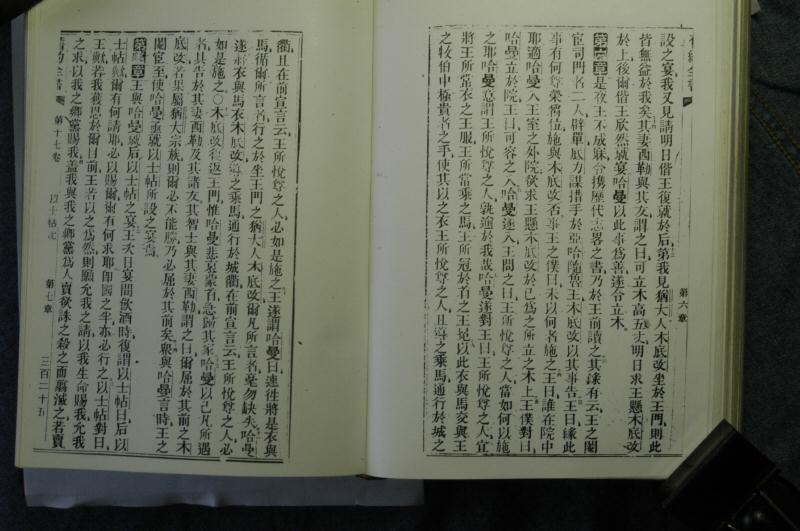 設之宴我又見請明日偕王復就於后第我見猶大人木底改坐於王門則此
皆無益於我矣其妻西勒與其友謂之曰可立木高五丈明日求王懸木底改
於上後爾偕王欣然就宴哈曼以此事爲善遂令立木
第六章是夜王不成寐令攜歷代志畧之書乃於王前讀之其錄有云王之閽
宦司門者二人辟單底力謀措手於亞哈隨魯王木底改以其事告王曰緣此
事有何尊榮賞位施與木底改否事王之僕曰未以何者施之王曰誰在院中
耶適哈曼入王室之外院欲求王懸木底改於己爲之所立之木上王僕對曰
哈曼立於院王曰可容之入哈曼遂入王問之曰王所悅尊之人當如何以施
之耶哈曼意謂王所悅尊之人孰逾於我故哈曼遂對王曰王所悅尊之人宜
將王所常衣之王服王所常乘之馬王所冠於首之王冕以此衣與馬交與王
之牧伯中極貴者之手使其以之衣王所悅尊之人且導之乘馬通行於城之
第六章
衢且在前宣言云王所悅尊之人必如是施之王遂謂哈曼曰速往將是衣與
馬循爾所言者行之於坐王門之猶大人木底改爾凡所言者毫勿缺失哈曼
遂將衣與馬衣木底改導之乘馬通行於城衢在前宣言云王所悅尊之人必
如是施之○木底改復返王門惟哈曼悲哀蒙首急歸其家哈曼以己凡所遇
者具告於其妻西勒及其諸友其智士與其妻西勒謂之曰爾屈於其前之木
底改若果屬猶大宗族則爾必不能勝乃必屈於其前矣衆與哈曼言時王之
閹宦至使哈曼亟就以士帖所設之宴焉
第七章王與哈曼就后以士帖之宴王次日宴間飲酒時復謂以士帖曰后以
士帖歟爾有何請耶必以賜爾爾有何求耶即國之半亦必行之以士帖對曰
王歟若我獲恩於爾目前王若以之爲然則願允我之請以我生命賜我允我
之求以我之鄉黨賜我蓋我與我之鄉黨爲人賣欲誅之殺之而翦滅之若賣
舊約全書 第十七卷 以士帖記 第七章 三百二十五